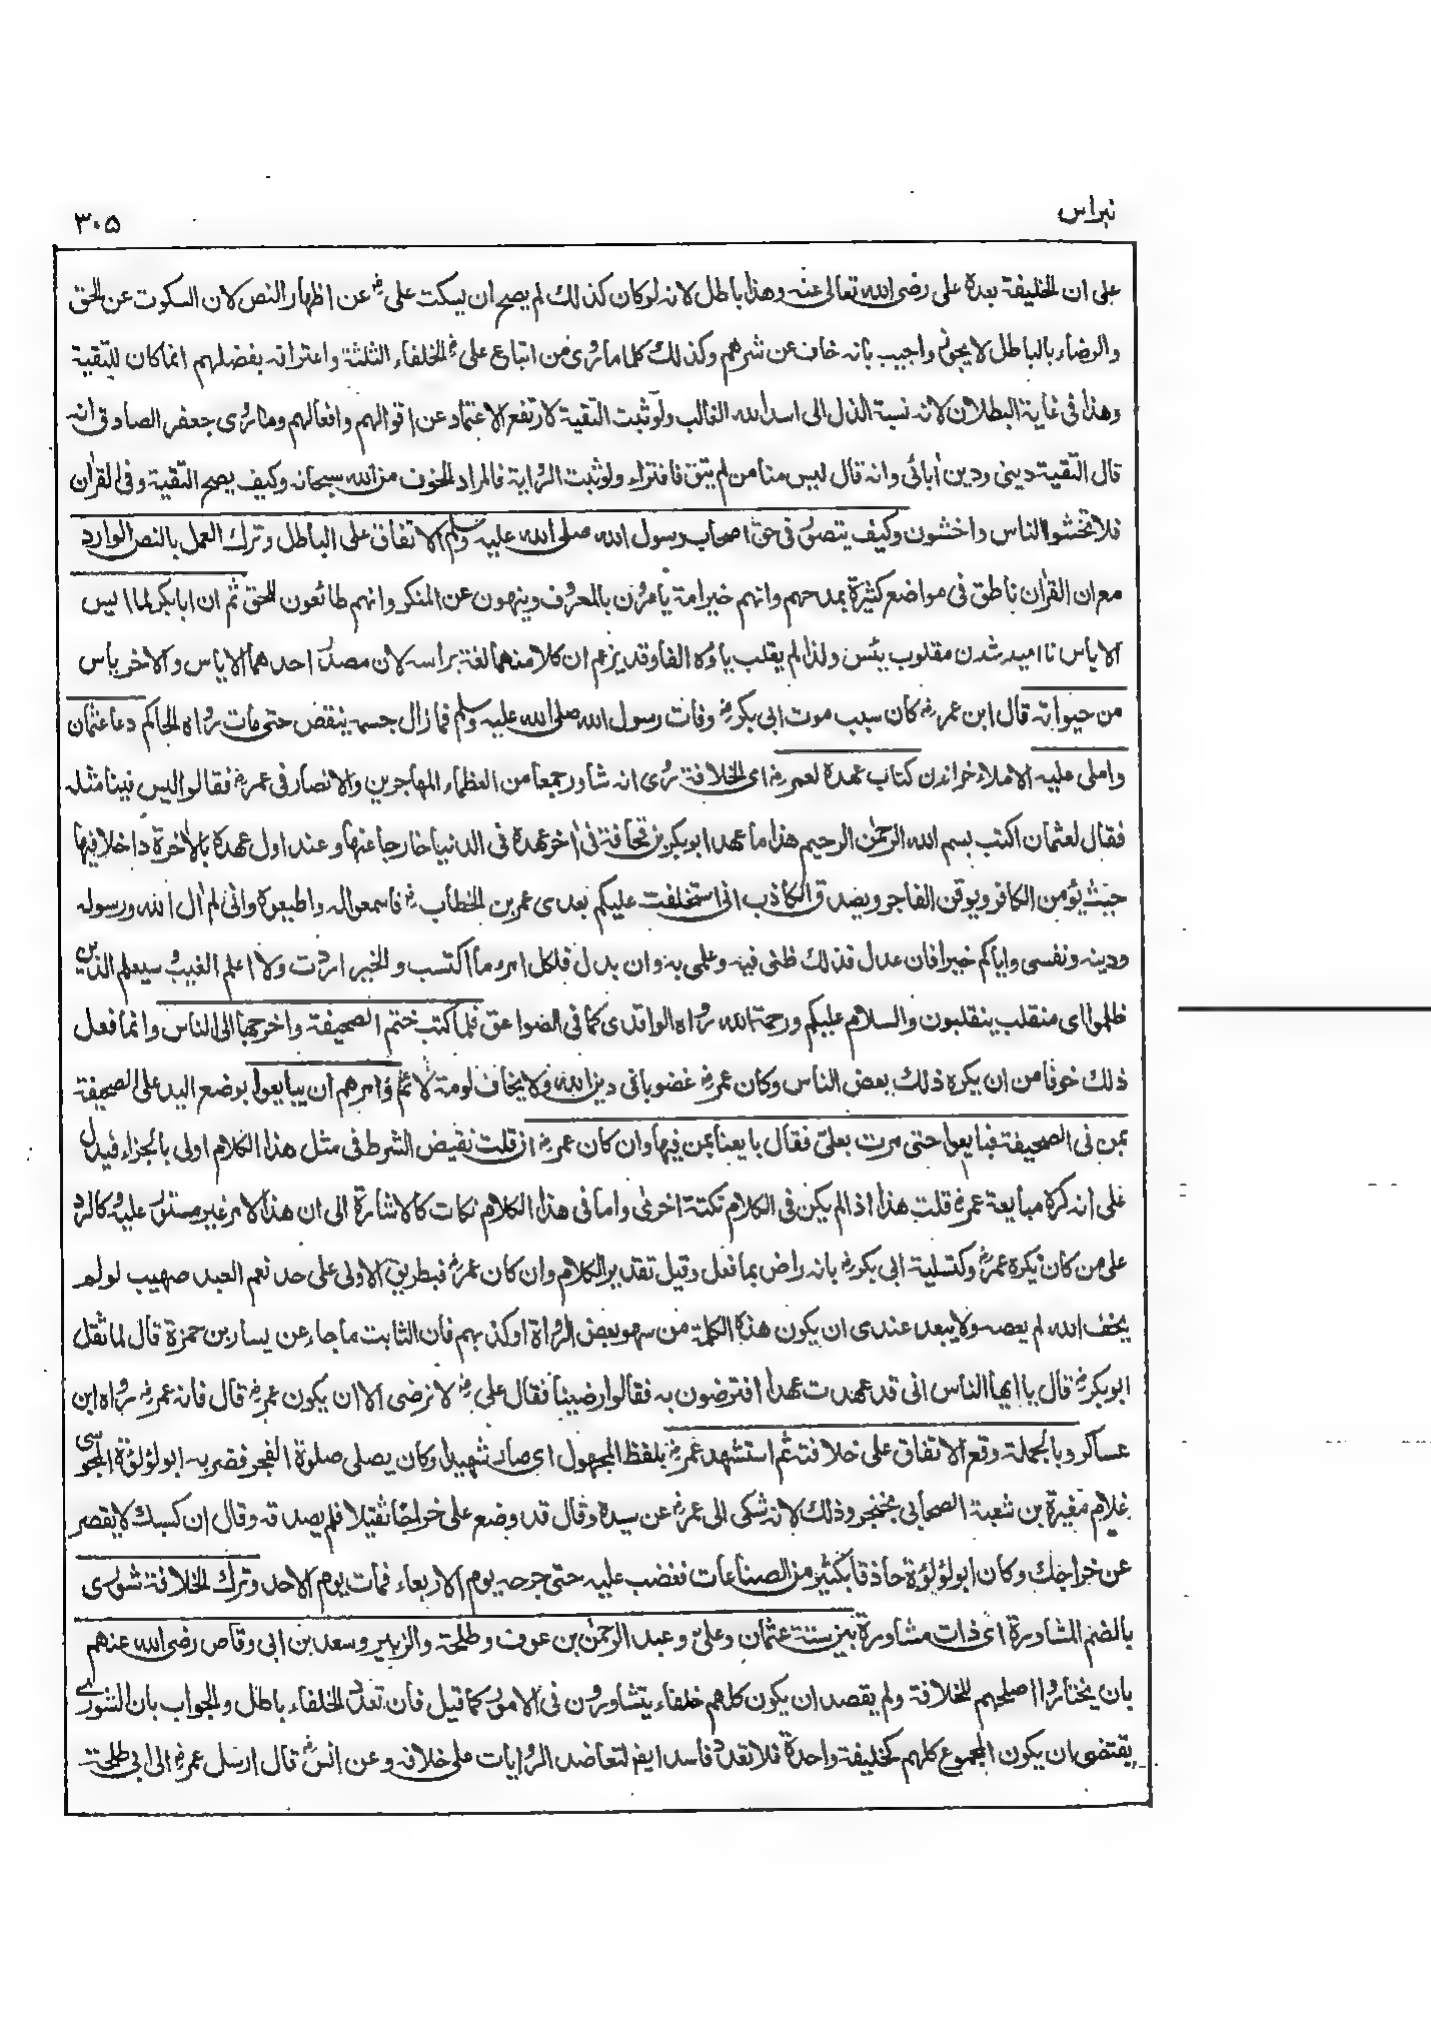 نبراس
٣٠٥
على ان الخليفة بعده على رضى الله تعالى عنه وهذا باطل لانه لو كان كذلك لم يصح ان يسكت على رض عن اظهار النص لان السكوت عن الحق
والرضاء بالباطل لا يجوز واجيب بانه خاف عن شرهم وكذلك كلما روى من اتباع على رض الخلفاء الثلثة واعترافه بفضلهم انما كان للتقية
وهذا فى غاية البطلان لانه نسبة الذل الى اسد الله الغالب ولو ثبت التقية لارتفع الاعتماد عن اقوالهم وافعالهم وما روى جعفر الصادق انه
قال التقية دينى ودين أبائى وانه قال ليس منا من لم يتق فافتراء ولو ثبت الرواية فالمراد الخوف من الله سبحانه وكيف يصح التقية وفى القرأن
فلا تخشوا الناس واخشون وكيف يتصور فى حق اصحاب رسول الله صلى الله عليه وسلم الاتفاق على الباطل وترك العمل بالنص الوارد
مع ان القرأن ناطق فى مواضع كثيرة بمدحهم وانهم خير امة يأمرون بالمعروف وينهون عن المنكر وانهم طائعون للحق ثم ان ابا بكر لما ايس
الاياس نا اميد شدن مقلوب يئس ولذا لم يقلب ياؤه الفا وقد يزعم ان كلا منهما لغة براسه لان مصدر احدهما الاياس والاخر ياس
من حيواته قال ابن عمر رض كان سبب موت ابى بكر رض وفات رسول الله صلى الله عليه وسلم فما زال جسمه ينقض حتى مات رواه الحاكم دعا عثمان
واملى عليه الاملاء خواندن كتاب عهده لعمر رض اى الخلافة روى انه شاور جمعا من العظماء المهاجرين والانصار فى عمر رض فقالوا ليس فينا مثله
فقال لعثمان اكتب بسم الله الرحمن الرحيم هذا ما عهد ابو بكر بن قحافة فى أخر عهده فى الدنيا خارجا عنها وعند اول عهده بالأخرة داخلا فيها
حيث يؤمن الكافر ويوقن الفاجر ويصدق الكاذب انى استخلفت عليكم بعدى عمر بن الخطاب رض فاسمعوا له واطيعوه وانى لم أل الله ورسوله
ودينه ونفسى واياكم خيرا فان عدل فذلك ظنى فيه وعلمى به وان بدل فلكل امرء ما اكتسب والخير اردت ولا اعلم الغيب سيعلم الذين
ظلموا اى منقلب ينقلبون والسلام عليكم ورحمة الله رواه الواقدى كما فى الصواعق فلما كتب ختم الصحيفة واخرجها الى الناس وانما فعل
ذلك خوفا من ان يكره ذلك بعض الناس وكان عمر رض غضوبا فى دين الله ولا يخاف لومة لائم وامرهم ان يبايعوا بوضع اليد على الصحيفة
بمن فى الصحيفة فبايعوا حتى مرت بعلى فقال بايعنا بمن فيها وان كان عمر رض ان قلت نقيض الشرط فى مثل هذا الكلام اولى بالجزاء فيدل
على انه كره مبايعة عمر رض قلت هذا اذا لم يكن فى الكلام نكتة اخرى واما فى هذا الكلام نكات كالاشارة الى ان هذا الامر غير مستور عليه كالرد
على من كان يكره عمر رض وكتسلية ابى بكر رض بانه راض بما فعل وقيل تقدير الكلام وان كان عمر رض فبطريق الاولى على حد نعم العبد صهيب لو لم
يخف الله لم يعصه ولا يبعد عندى ان يكون هذه الكلمة من سهو بعض الرواة او كذبهم فان الثابت ما جاء عن يسار بن حمزة قال لما ثقل
ابو بكر رض قال يا ايها الناس انى قد عهدت عهدا افترضون به فقالوا رضينا فقال على رض لا نرضى الا ان يكون عمر رض قال فانه عمر رض رواه ابن
عساكر وبالجملة وقع الاتفاق على خلافته ثم استشهد عمر رض بلفظ المجهول اى صار شهيدا وكان يصلى صلوة الفجر فضربه ابو لؤلؤة المجوسى
غلام مغيرة بن شعبة الصحابى بخنجر وذلك لانه شكى الى عمر رض عن سيده وقال قد وضع على خراجا ثقيلا فلم يصدقه وقال ان كسبك لا يقصر
عن خراجك وكان ابو لؤلؤة حاذقا بكثير من الصناعات فغضب عليه حتى جرحه يوم الاربعاء فمات يوم الاحد وترك الخلافة شورى
بالضم المشاورة اى ذات مشاورة بين ستة عثمان وعلى وعبد الرحمن بن عوف وطلحة والزبير وسعد بن ابى وقاص رضى الله عنهم
بان يختاروا اصلحهم للخلافة ولم يقصد ان يكون كلهم خلفاء يتشاورون فى الامور كما قيل فان تعدد الخلفاء باطل والجواب بان الشورى
يقتضى ان يكون المجموع كلهم كخليفة واحدة فلا تعدد فاسد ايضا لتعاضد الروايات على خلافه وعن انس رض قال ارسل عمر رض الى ابى طلحة